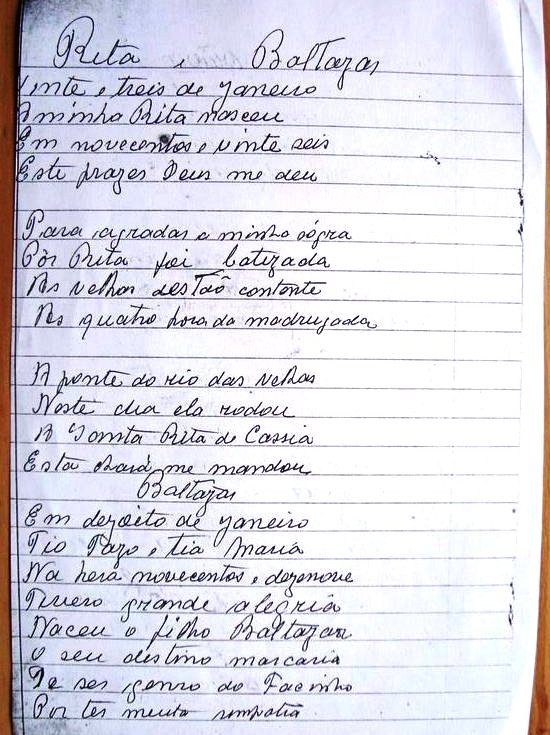 Rita e Baltazar
Vinte e treis de janeiro
A minha Rita nasceu
Em novecentos e vinte seis
Este prazer Deus me deu
Para agradar a minha sógra
Por Rita foi batizada
As velhas contente
As quatro hora da madrugada
A ponte do rio das velhas
Neste dia ela rodou
A Santa Rita de Cassia
Esta me mandou
Baltazar
Em dezoito de janeiro
Tio e tia Maria
Na hera novecentos e dezenove
Tivero grande alegria
Naceu o filho Baltazar
O seu destino marcaria
De ser genro do
Por ter muita simpatia